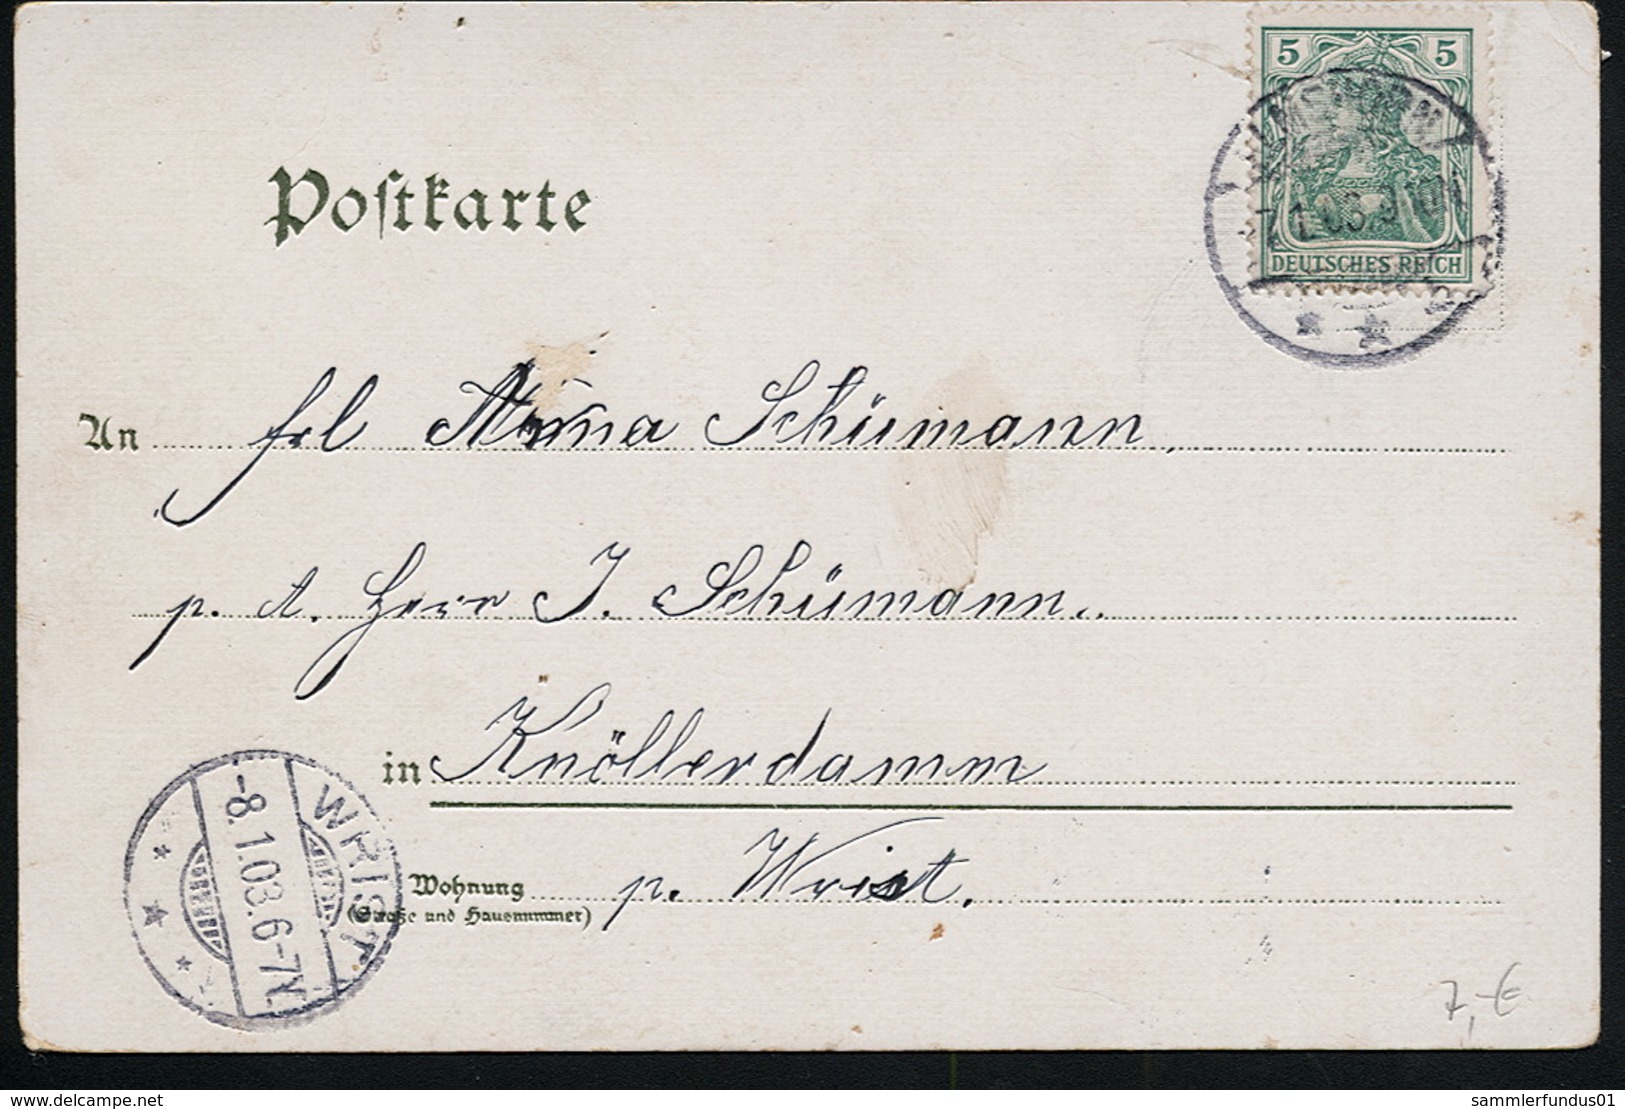 5 5
DEUTSCHES REICH
Poſtkarte
An frl Anna Schümann,
p. A. Herr J. Schümann.
in Knöllerdamm
Wohnung p. Wrist.
(Straße und Hausnummer)
WRIST
-8.1.03.6-7V.
7,-€
www.delcampe.net
sammlerfundus01